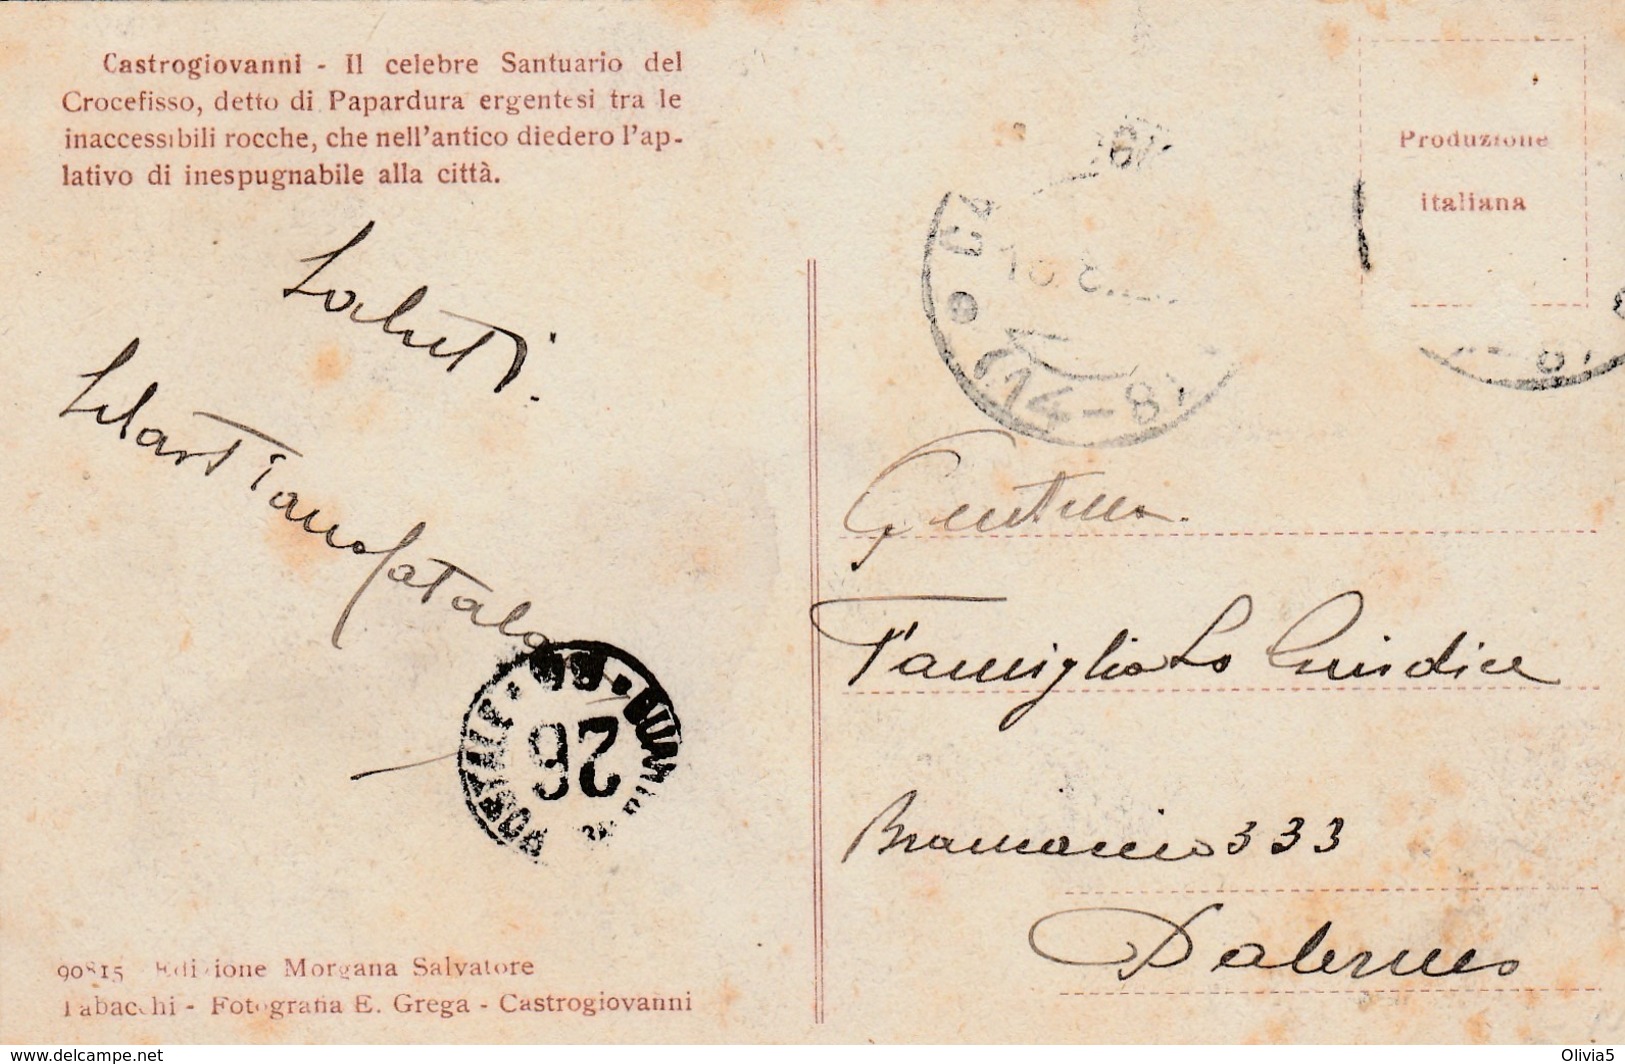 Castrogiovanni - Il celebre Santuario del
Crocefisso, detto di Papardura ergentesi tra le
inaccessibili rocche, che nell'antico diedero l'ap-
lativo di inespugnabile alla città.
Produzione
italiana
CA
14-8
Saluti.
Gentilma.
Famiglia Lo Giudice
POSTALE
26
333
Palermo
90815 Edizione Morgana Salvatore
Tabacchi - Fotografia E. Grega - Castrogiovanni
delcampe.net
Olivia5